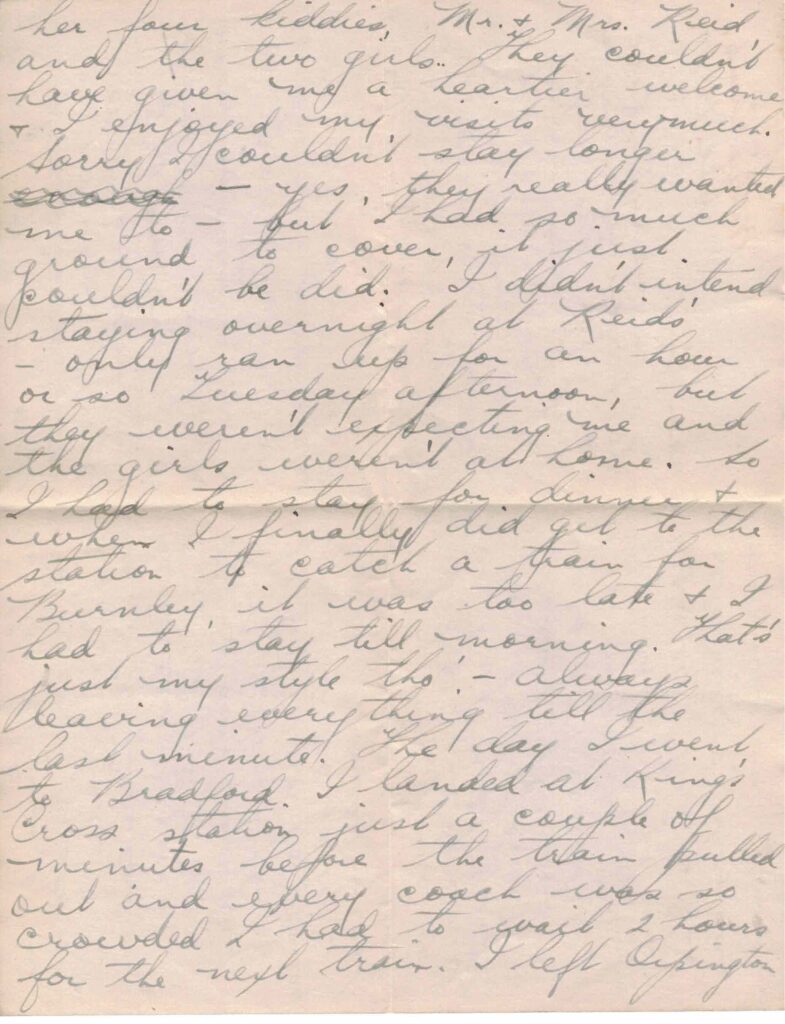 her four kiddies, Mr. & Mrs. Reid,
and the two girls. They couldn't
have given me a heartier welcome
& I enjoyed my visits very much.
Sorry I couldn't stay longer
enough – yes, they really wanted
me to – but I had so much
ground to cover, it just
couldn't be did. I didn't intend
staying overnight at Reids'
– only ran up for an hour
or so Tuesday afternoon, but
they weren't expecting me and
the girls weren't at home. So
I had to stay for dinner &
when I finally did get to the
station to catch a train for
Burnley, it was too late & I
had to stay till morning. That's
just my style tho' – always
leaving everything till the
last minute. The day I went
to Bradford I landed at King's
Cross station just a couple of
minutes before the train pulled
out and every coach was so
crowded I had to wait 2 hours
for the next train. I left Orpington